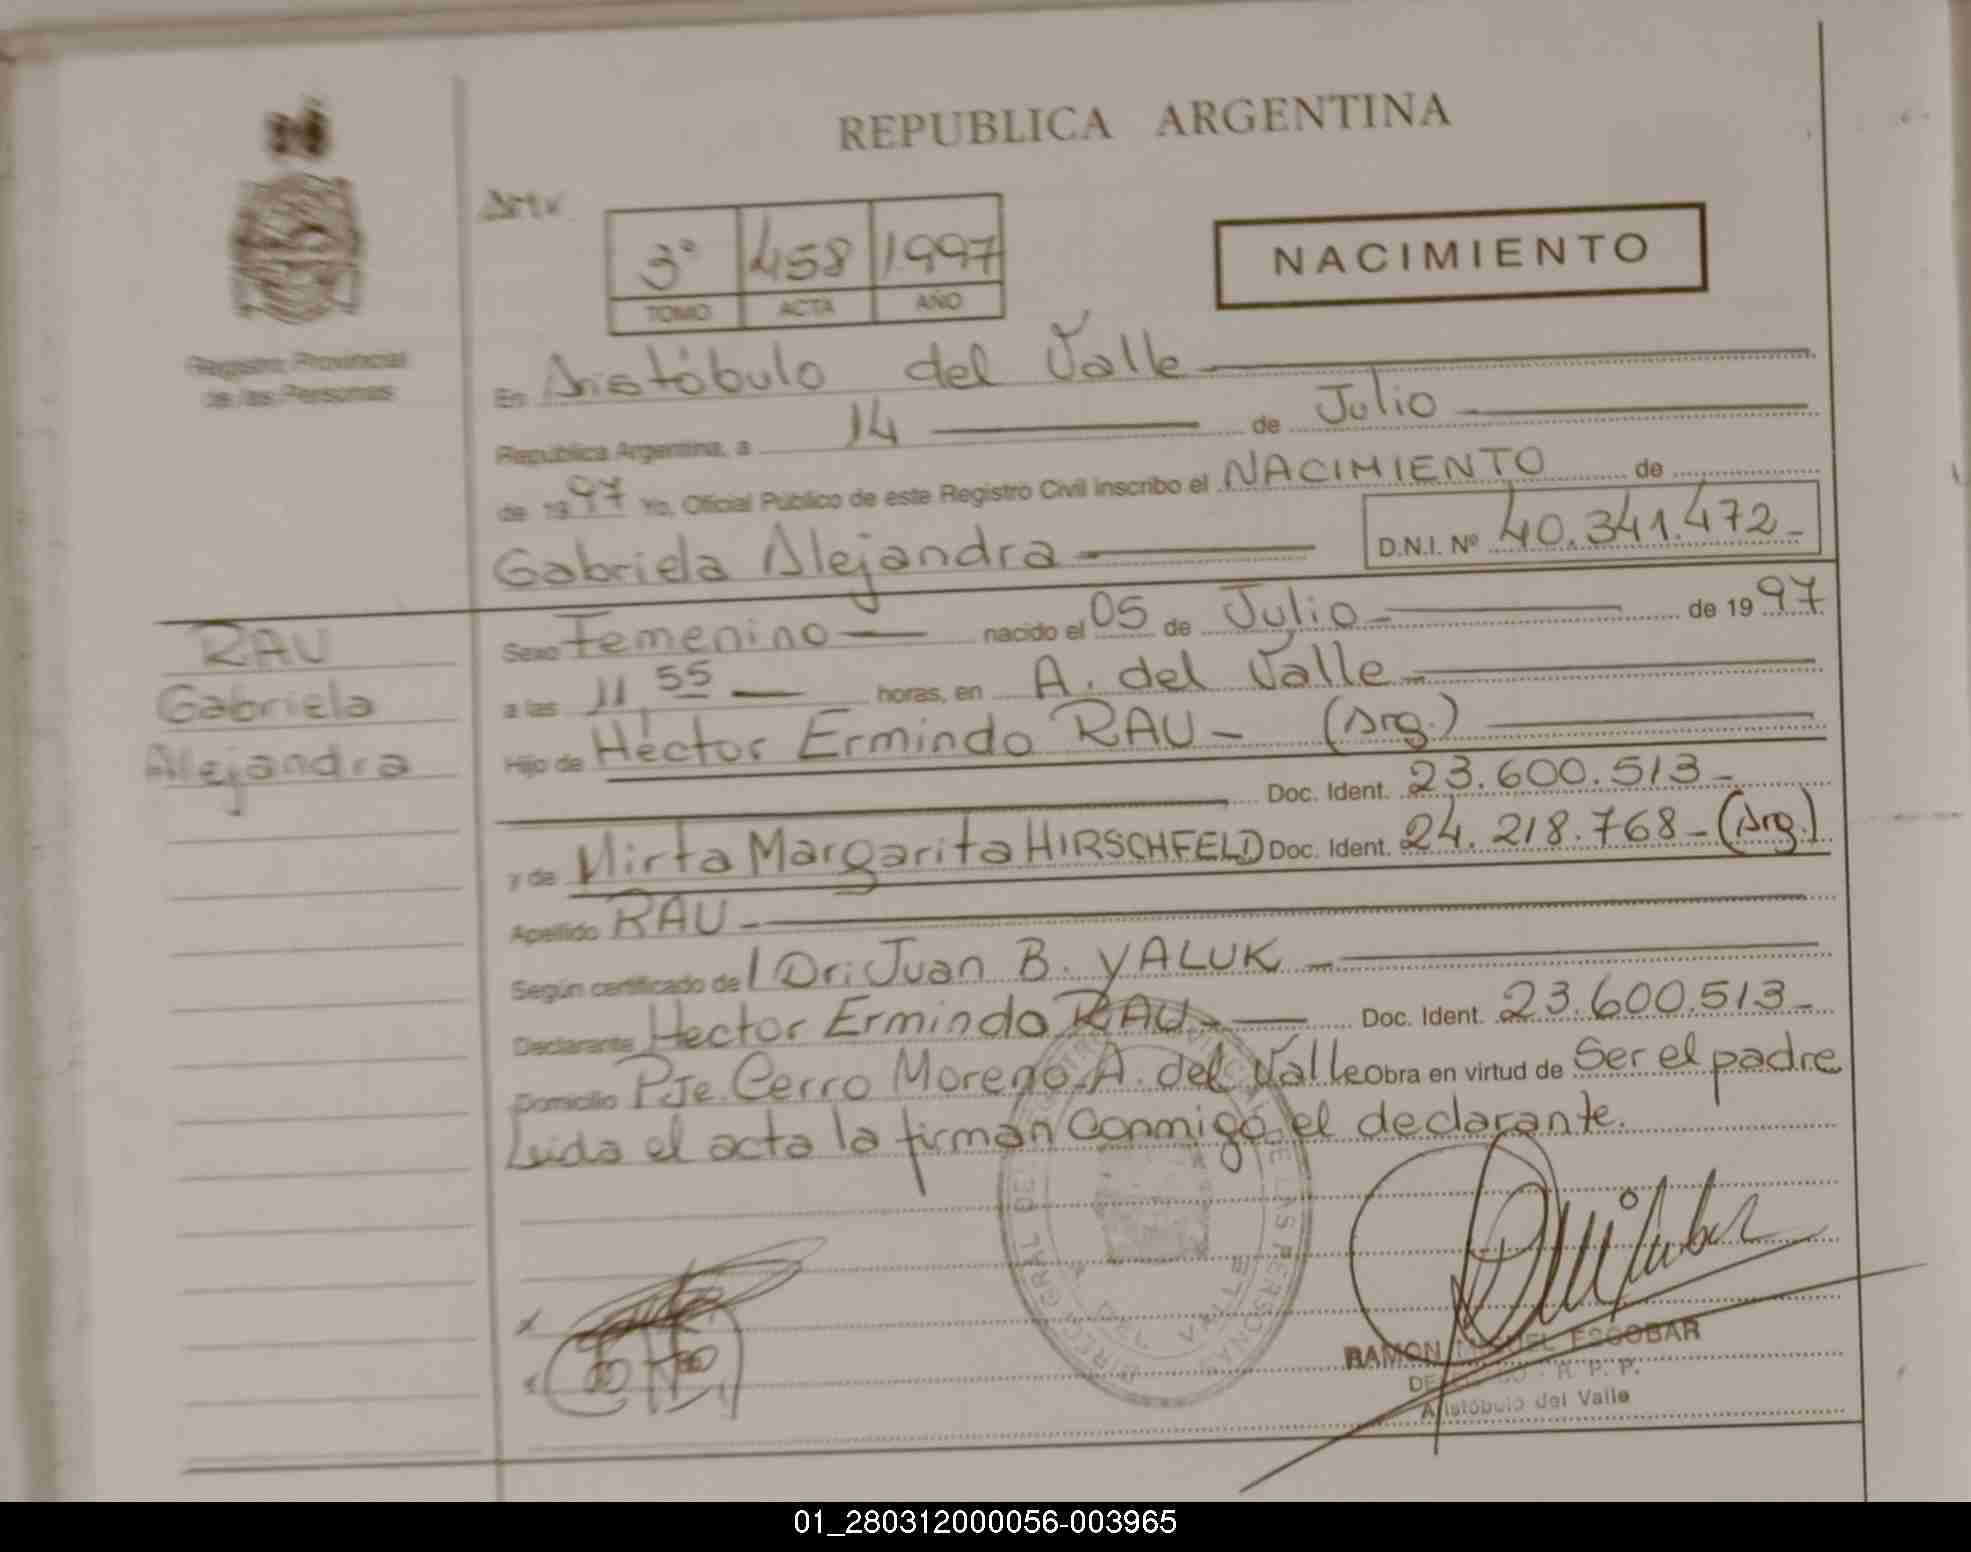 REPUBLICA ARGENTINA
3° 458 1997
TOMO ACTA AÑO
NACIMIENTO
Registro Provincial
de las Personas
En Aristóbulo del Valle
República Argentina, a 14 de Julio
de 1997 Yo, Oficial Público de este Registro Civil inscribo el NACIMIENTO de
Gabriela Alejandra D.N.I. Nº 40.341.472-
RAU
Gabriela
Alejandra
Sexo Femenino nacido el 05 de Julio de 1997
a las 11,55 horas, en A. del Valle
Hijo de Héctor Ermindo RAU - (Arg.)
Doc. Ident. 23.600.513-
y de Mirta Margarita HIRSCHFELD Doc. Ident. 24.218.768-(Arg.)
Apellido RAU-
Según certificado de l Dr: Juan B. YALUK -
Declarante Hector Ermindo RAU- Doc. Ident. 23.600.513-
Domicilio Pje. Cerro Moreno-A. del Valle Obra en virtud de Ser el padre
Leída el acta la firman conmigo el declarante.
RAMON MIGUEL ESCOBAR
R. P. P.
Aristóbulo del Valle
01_280312000056-003965